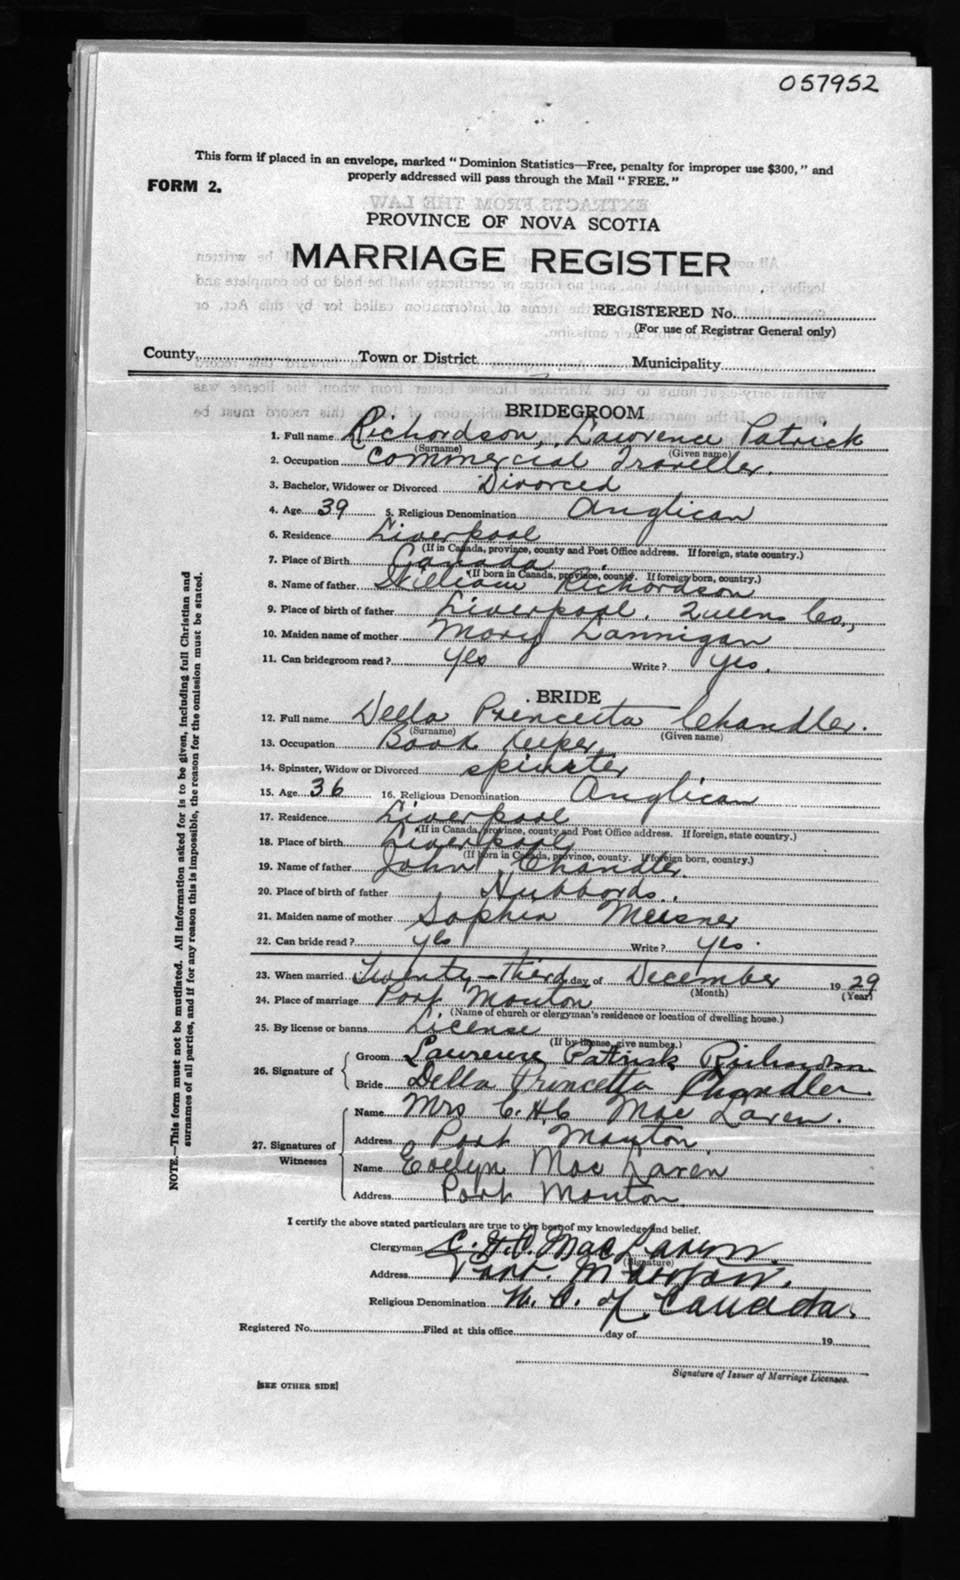 057952
This form if placed in an envelope, marked "Dominion Statistics—Free, penalty for improper use $300," and
properly addressed will pass through the Mail "FREE."
FORM 2.
EXTRACTS FROM THE LAW
PROVINCE OF NOVA SCOTIA
MARRIAGE REGISTER
REGISTERED No.
(For use of Registrar General only)
County Town or District Municipality
BRIDEGROOM
1. Full name Richardson, Lawrence Patrick
(Surname) (Given name)
2. Occupation Commercial Traveller.
3. Bachelor, Widower or Divorced Divorced
4. Age 39 5. Religious Denomination Anglican
6. Residence Liverpool
(If in Canada, province, county and Post Office address. If foreign, state country.)
7. Place of Birth Canada
(If born in Canada, province, county. If foreign born, country.)
8. Name of father William Richardson
9. Place of birth of father Liverpool, Queens Co.,
10. Maiden name of mother Mary Lannigan
11. Can bridegroom read? yes Write? yes.
BRIDE
12. Full name Della Princetta Chandler.
(Surname) (Given name)
13. Occupation Book keeper
14. Spinster, Widow or Divorced spinster
15. Age 36 16. Religious Denomination Anglican
17. Residence Liverpool
(If in Canada, province, county and Post Office address. If foreign, state country.)
18. Place of birth Liverpool
(If born in Canada, province, county. If foreign born, country.)
19. Name of father John Chandler.
20. Place of birth of father Hubbards.
21. Maiden name of mother Sophia Meisner
22. Can bride read? yes Write? yes.
23. When married Twenty-third day of December 1929
(Month) (Year)
24. Place of marriage Port Mouton
(Name of church or clergyman's residence or location of dwelling house.)
25. By license or banns License
(If by license, give number.)
26. Signature of Groom Lawrence Patrick Richardson
Bride Della Princetta Chandler
27. Signatures of Witnesses Name Mrs C.H.C. MacLaren.
Address Port Mouton
Name Evelyn MacLaren
Address Port Mouton
I certify the above stated particulars are true to the best of my knowledge and belief.
Clergyman C.H.C. MacLaren.
(Signature)
Address Port. Mouton.
Religious Denomination U. C. of Canada.
Registered No. Filed at this office day of 19
Signature of Issuer of Marriage Licenses.
[SEE OTHER SIDE]
NOTE.—This form must not be mutilated. All information asked for is to be given, including full Christian and
surnames of all parties, and if for any reason this is impossible, the reason for the omission must be stated.